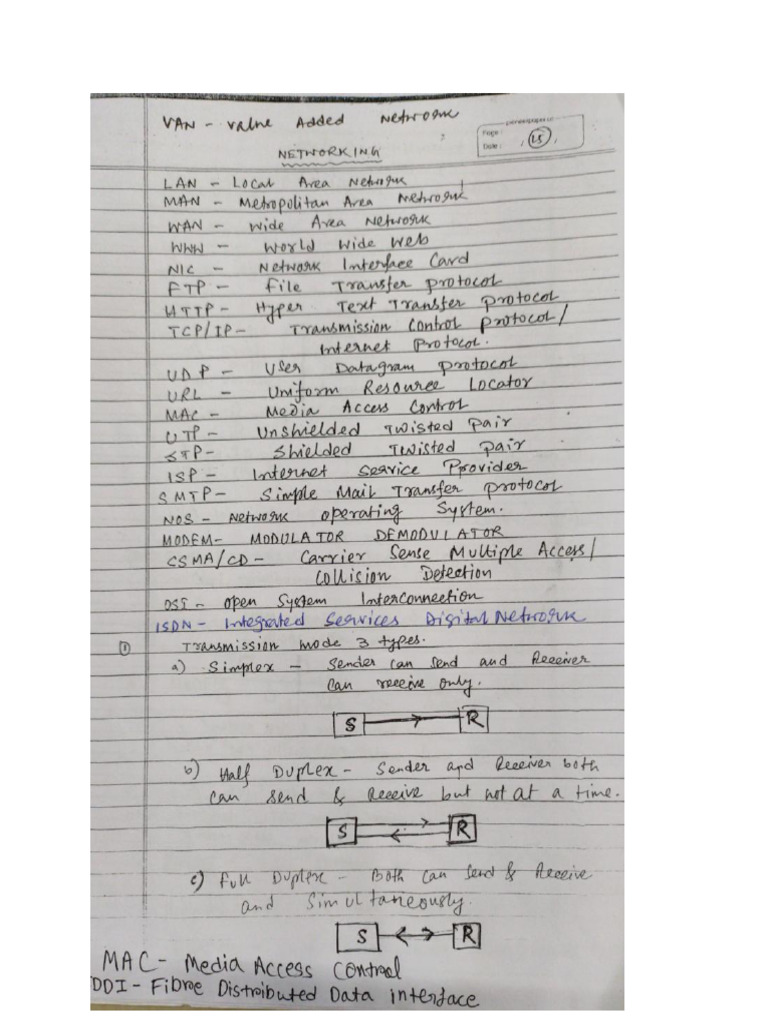 VAN - Value Added Network
Page :
Date :
15
NETWORKING
LAN - Local Area Network
MAN - Metropolitan Area Network
WAN - Wide Area Network
WWW - World Wide Web
NIC - Network Interface Card
FTP - File Transfer Protocol
HTTP - Hyper Text Transfer Protocol
TCP/IP - Transmission Control Protocol/
Internet Protocol.
UDP - User Datagram Protocol
URL - Uniform Resource Locator
MAC - Media Access Control
UTP - Unshielded Twisted Pair
STP - Shielded Twisted Pair
ISP - Internet Service Provider
SMTP - Simple Mail Transfer Protocol
NOS - Network Operating System.
MODEM - MODULATOR DEMODULATOR
CSMA/CD - Carrier Sense Multiple Access/
Collision Detection
OSI - Open System Interconnection
ISDN - Integrated Services Digital Network
① Transmission mode 3 types.
a) Simplex - Sender can send and Receiver
can receive only.
S R
b) Half Duplex - Sender and Receiver both
can send & Receive but not at a time.
S R
c) Full Duplex - Both can send & Receive
and Simultaneously.
S R
MAC - Media Access Control
DDI - Fibre Distributed Data interface